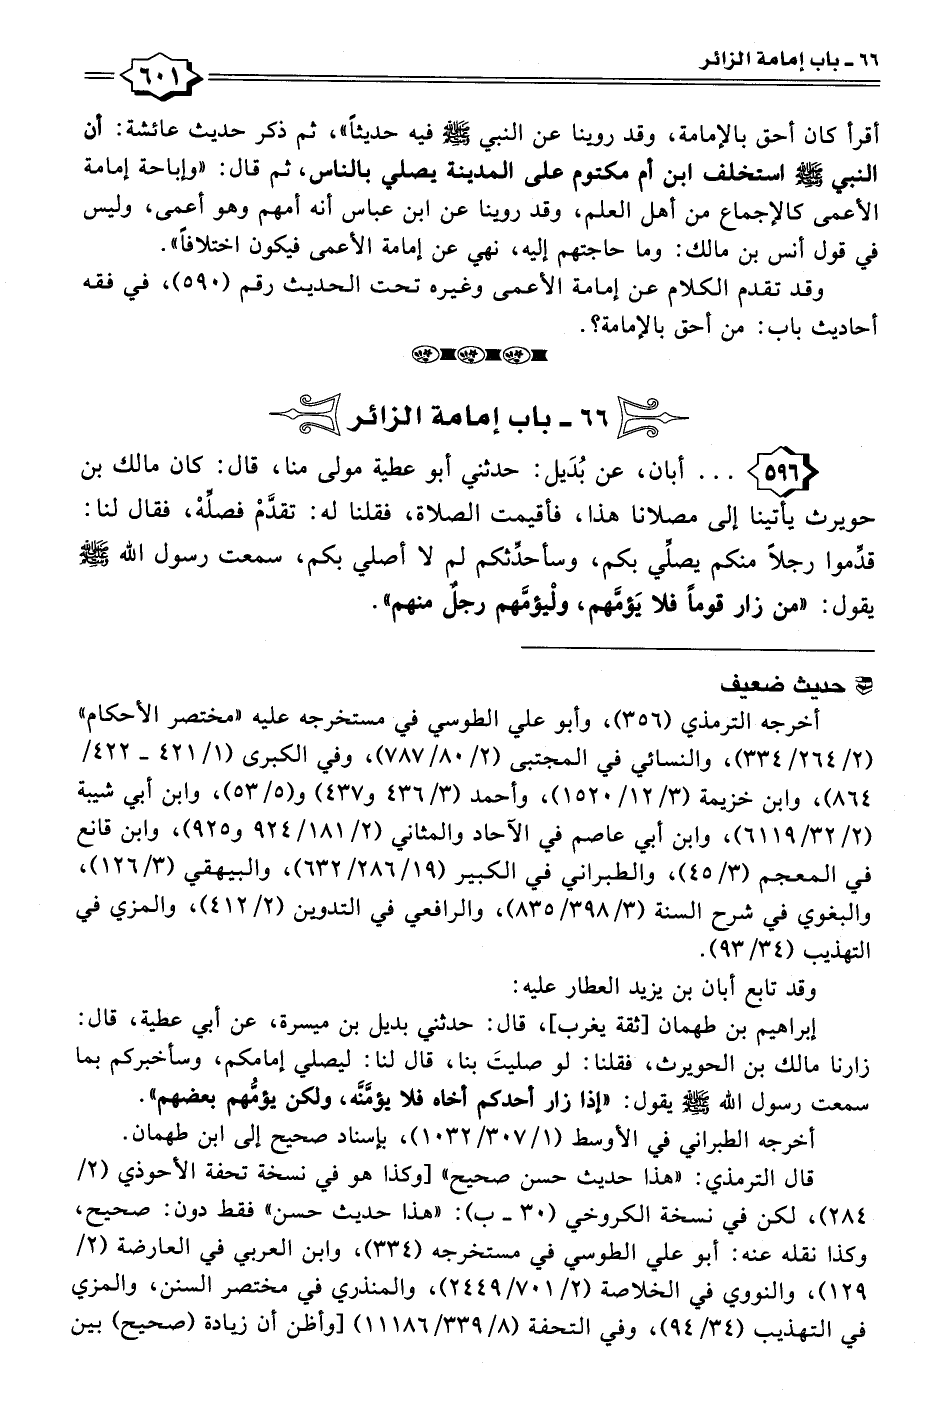 ٦٦ - باب إمامة الزائر
٦٠١
أقرأ كان أحق بالإمامة، وقد روينا عن النبي ﷺ فيه حديثاً»، ثم ذكر حديث عائشة: أن
النبي ﷺ استخلف ابن أم مكتوم على المدينة يصلي بالناس، ثم قال: «وإباحة إمامة
الأعمى كالإجماع من أهل العلم، وقد روينا عن ابن عباس أنه أمهم وهو أعمى، وليس
في قول أنس بن مالك: وما حاجتهم إليه، نهي عن إمامة الأعمى فيكون اختلافاً».
وقد تقدم الكلام عن إمامة الأعمى وغيره تحت الحديث رقم (٥٩٠)، في فقه
أحاديث باب: من أحق بالإمامة؟.
٦٦ - باب إمامة الزائر
٥٩٦ ... أبان، عن بُدَيل: حدثني أبو عطية مولى منا، قال: كان مالك بن
حويرث يأتينا إلى مصلانا هذا، فأقيمت الصلاة، فقلنا له: تقدَّمْ فصلِّهْ، فقال لنا:
قدِّموا رجلاً منكم يصلِّي بكم، وسأحدِّثكم لم لا أصلي بكم، سمعت رسول الله ﷺ
يقول: «من زار قوماً فلا يَؤمَّهم، ولْيؤمَّهم رجلٌ منهم».
حديث ضعيف
أخرجه الترمذي (٣٥٦)، وأبو علي الطوسي في مستخرجه عليه «مختصر الأحكام»
(٢/ ٢٦٤/ ٣٣٤)، والنسائي في المجتبى (٢/ ٨٠/ ٧٨٧)، وفي الكبرى (١/ ٤٢١ - ٤٢٢/
٨٦٤)، وابن خزيمة (٣/ ١٢/ ١٥٢٠)، وأحمد (٣/ ٤٣٦ و٤٣٧) و(٥/ ٥٣)، وابن أبي شيبة
(٢/ ٣٢/ ٦١١٩)، وابن أبي عاصم في الآحاد والمثاني (٢/ ١٨١/ ٩٢٤ و٩٢٥)، وابن قانع
في المعجم (٣/ ٤٥)، والطبراني في الكبير (١٩/ ٢٨٦/ ٦٣٢)، والبيهقي (٣/ ١٢٦)،
والبغوي في شرح السنة (٣/ ٣٩٨/ ٨٣٥)، والرافعي في التدوين (٢/ ٤١٢)، والمزي في
التهذيب (٣٤/ ٩٣).
وقد تابع أبان بن يزيد العطار عليه:
إبراهيم بن طهمان [ثقة يغرب]، قال: حدثني بديل بن ميسرة، عن أبي عطية، قال:
زارنا مالك بن الحويرث، فقلنا: لو صليتَ بنا، قال لنا: ليصلي إمامكم، وسأخبركم بما
سمعت رسول الله ﷺ يقول: «إذا زار أحدكم أخاه فلا يؤمَّنَّه، ولكن يؤمُّهم بعضهم».
أخرجه الطبراني في الأوسط (١/ ٣٠٧/ ١٠٣٢)، بإسناد صحيح إلى ابن طهمان.
قال الترمذي: «هذا حديث حسن صحيح» [وكذا هو في نسخة تحفة الأحوذي (٢/
٢٨٤)، لكن في نسخة الكروخي (٣٠ - ب): «هذا حديث حسن» فقط دون: صحيح،
وكذا نقله عنه: أبو علي الطوسي في مستخرجه (٣٣٤)، وابن العربي في العارضة (٢/
١٢٩)، والنووي في الخلاصة (٢/ ٧٠١/ ٢٤٤٩)، والمنذري في مختصر السنن، والمزي
في التهذيب (٣٤/ ٩٤)، وفي التحفة (٨/ ٣٣٩/ ١١١٨٦) [وأظن أن زيادة (صحيح) بين